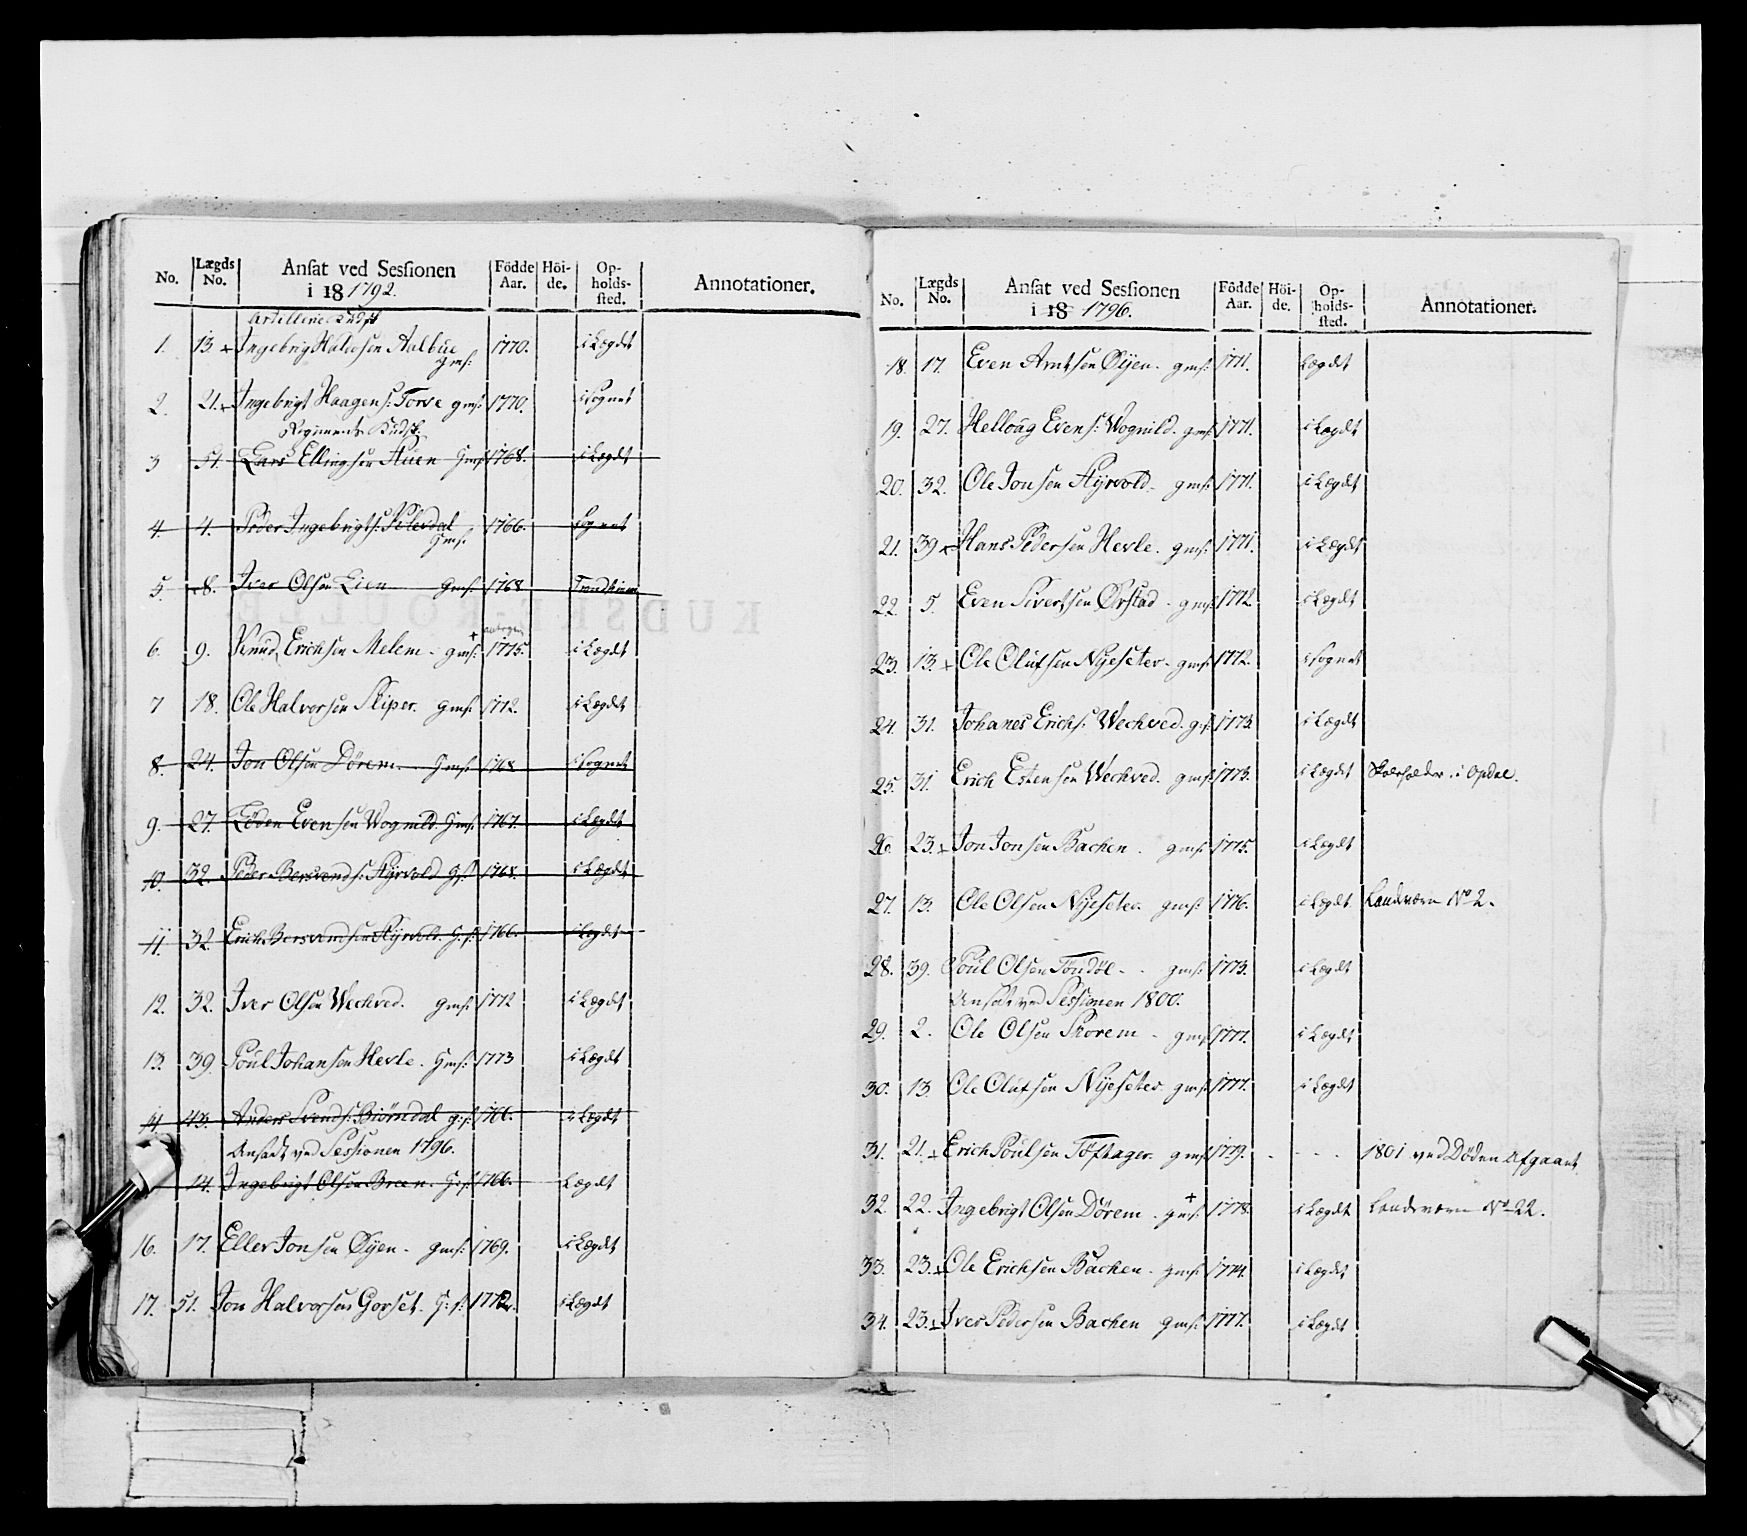 No. Lægds No. Ansat ved Sessionen i 18 1792. Födde Aar. Höi-de. Op-holds-sted. Annotationer.
Artellerie Kudsk
1. 13. Ingebrig Halvosen Aalbue gms: 1770. i Lægdet
2. 21. Ingebrigt Haagens: Torve gms: 1770. i Sognet
Regiments Kudsk:
3 51. Lars Ellingsen Huen Gms: 1768. i Lægdt
4. 4. Peder Ingebrigts: Gms: 1766. Sognet
5. 8. Iver Olsen Lien Gms: 1768 Trondhiem
6. 9. Knud Erichsen Melem - gms: 1775. i Lægdt
7 18. Ole Halvorsen Skiper. gms: 1772. i Lægdet
8. 24. Jon Olsen Dörem. Gms: 1768 i Sognet
9. 27. Löden Evensen Wognild. Gms: 1767. i Lægdt
10. 32. Peder Bersvends: Hyrvold G:s: 1768. i Lægdt
11. 32 Erich Bersvendsen Hyrvold. G:s: 1766. i Lægdt
12. 32. Iver Olsen Wechved. gms: 1772 i Lægdt
13. 39. Poul Johansen Hevle. Gms: 1773 i Lægdt
14 43. Anders Svends: Biörndal g:s: 1766. i Lægdt
Ansadt ved Sessionen 1796.
14. Ingebrigt Olsen Breen. G:s: 1766. Lægdt
16. 17. Eller Jonsen Öyen - gms: 1769. i Lægdt
17. 51. Jon Halvorsen Gorset. G:s: 1772. i Lægdt
No. Lægds No. Ansat ved Sessionen i 18 1796. Födde Aar. Höi-de. Op-holds-sted. Annotationer.
18. 17. Even Arntsen Öijen. gms: 1771. Lægdt
19. 27. Helloug Evens: Wognild. gms: 1771. i Lægdt
20. 32. Ole Jonsen Hyrvold. gms: 1771. i Lægdt
21. 39 Hans Pedersen Hevle. gms: 1771. i Lægdt
22. 5. Even Sivertsen Örstad - gms: 1772 i Lægdt
23. 13. Ole Olufsen Nyeseter - gms: 1772. i Sognet
24. 31. Johanes Erichs: Wechved. g:s: 1773. i Lægdt
25. 31. Erich Estensen Wechved. gms: 1773. i Lægdt Skoleholder i Opdal.
26. 23. Jon Jonsen Bachen. gms: 1775. i Lægdt
27. 13. Ole Olsen Nyeseter. gms: 1776. i Lægdt Landværn No 2.
28. 39. Poul Olsen Töndöl - - gms: 1773. i Lægdt
Ansadt ved Sessionen 1800.
29. 2. Ole Olsen Skorem - gms: 1777. i Lægdt
30. 13. Ole Olufsen Nijeseter gms: 1777. i Lægdt
31. 21. Erich Poulsen Töftager. gms: 1779. - - - - 1801 ved Döden Afgaaet
32. 22. Ingebrigt Olsen Dörem. gms: 1778. i Lægdt Landværn No 22.
33. 23. Ole Erichsen Bachen. gms: 1774. i Lægdt
34. 23. Iver Pedersen Bachen gms: 1777. i Lægdt